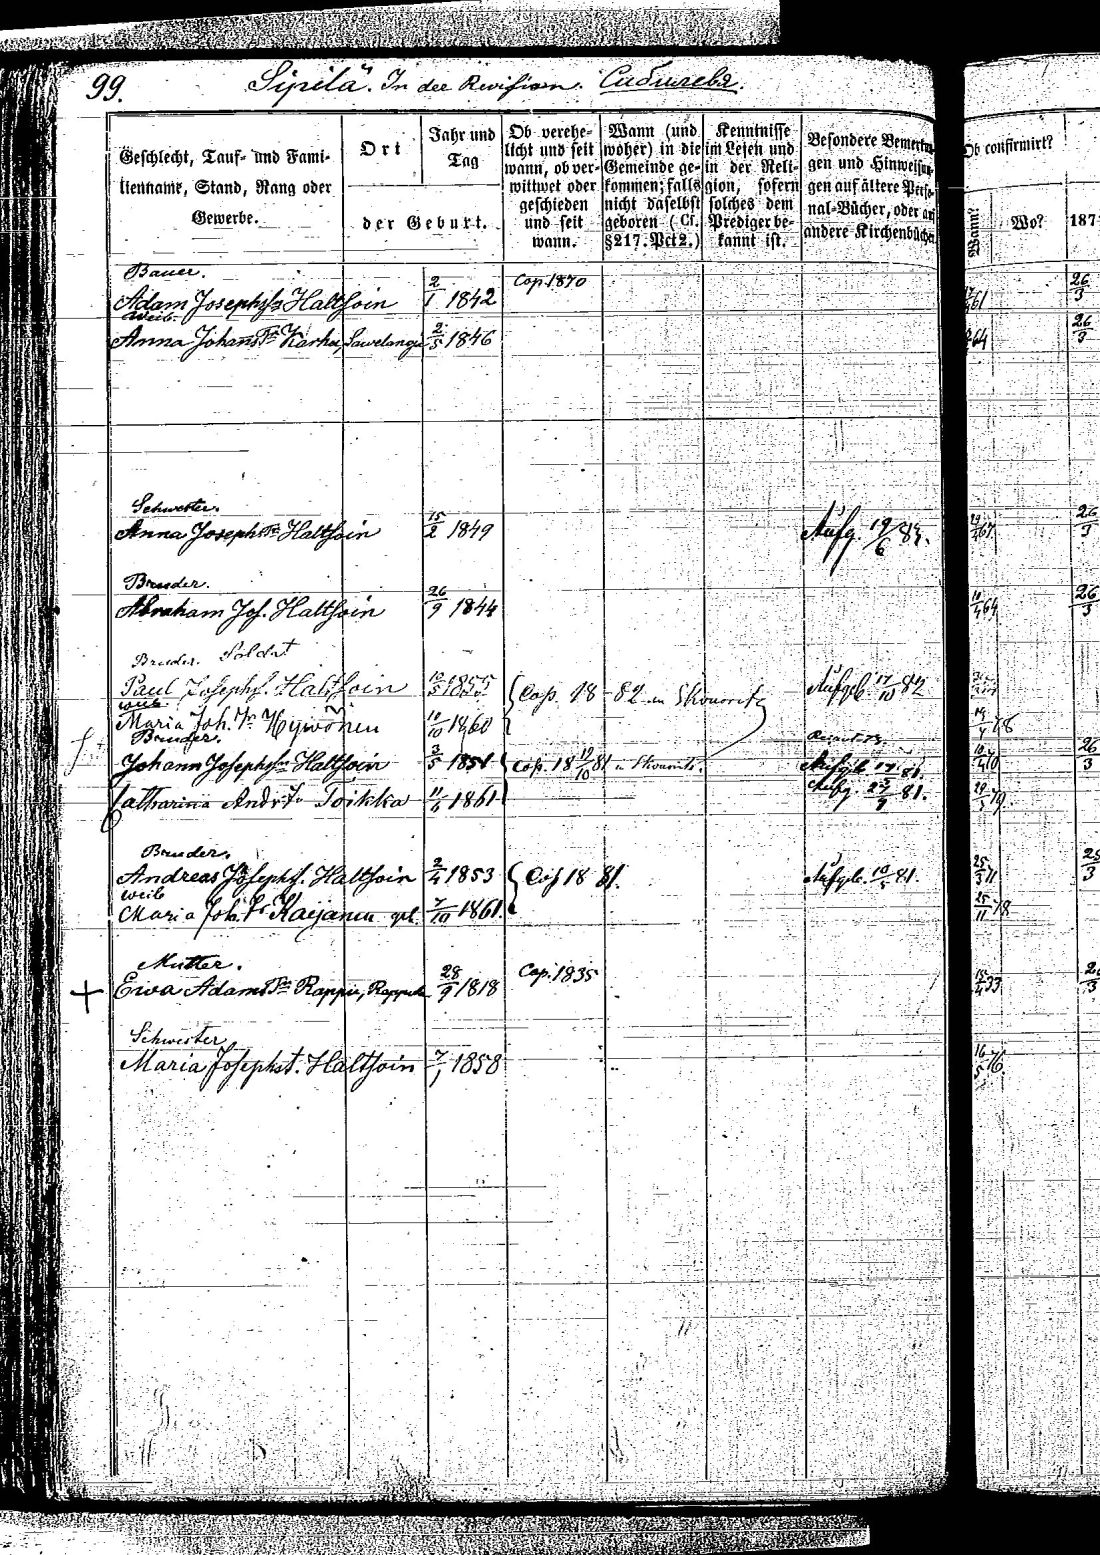 99.
Sipilä. In der Revision. Сибилева.
Geschlecht, Tauf- und Fami-
lienname, Stand, Rang oder
Gewerbe.
Ort
Jahr und
Tag
der Geburt.
Ob verehe-
licht und seit
wann, ob ver-
wittwet oder
geschieden
und seit
wann.
Wann (und
woher) in die
Gemeinde ge-
kommen; falls
nicht daselbst
geboren (Cf.
§217. Pct 2.)
Kenntnisse
im Lesen und
in der Reli-
gion, sofern
solches dem
Prediger be-
kannt ist.
Besondere Bemerkun-
gen und Hinweisun-
gen auf ältere Perso-
nal-Bücher, oder auf
andere Kirchenbücher
Ob confirmirt?
Wann?
Wo?
187
Bauer.
Adam Josephs. Haltsoin 2/1 1842 Cop. 1870 61 26/3
Weib.
Anna Johans Tr Karhu, 2/5 1846 64 26/3
Schwester.
Anna Josephs Tr Haltsoin 15/2 1849 Aufg. 19/6 67 26/3
Bruder.
Abraham Jos. Haltsoin 26/9 1844 64 26/3
Bruder. Soldat
Paul Josephs. Haltsoin 1855 Cop. 18-82 in Skworitz Aufgb. 17/10 82
Weib
Maria Joh. Tr. Hywönen 10/10 1860 78
Bruder.
Johann Josephs. Haltsoin 3/5 1851 Cop. 18 19/10 81 in Skworitz. Aufgb. 17/ 81. 26/3
Catharina Andr. Tr Toikka 1861 Aufg. 81. 79
Bruder.
Andreas Josephs. Haltsoin 2/4 1853 Cop 18 81. Aufgb. 10/5 81. 25/3 71
Weib
Maria Joh. Tr Kaijanen 7/10 1861 25/11 78
Mutter.
Ewa Adams Tr Rappu, 28/9 1818 Cop. 1835 33
Schwester
Maria Josephst. Haltsoin 7/1 1858 16/5 76.